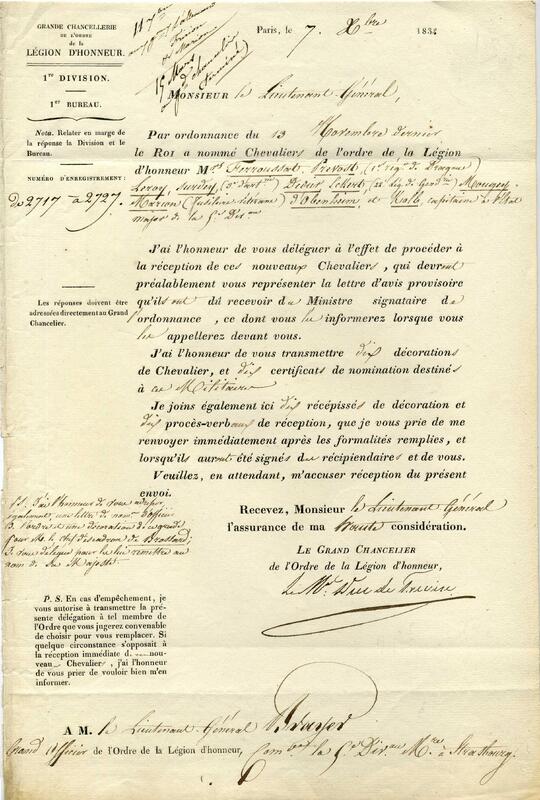 GRANDE CHANCELLERIE
DE L'ORDRE
de la
LÉGION D'HONNEUR.
1re DIVISION.
1er BUREAU.
Nota. Relater en marge de
la réponse la Division et le
Bureau.
NUMÉRO D'ENREGISTREMENT:
de 2717 à 2727.
Les réponses doivent être
adressées directement au Grand
Chancelier.
Paris, le 7 Xbre 183
MONSIEUR le Lieutenant Général,
Par ordonnance du 13 Novembre dernier
le ROI a nommé Chevaliers de l'ordre de la Légion
d'honneur Mrs Ferroussat, Prevost, (1er rég. de Dragons)
Leroy, Surdey, Didier, Eckert, Mougey
Marion d'Obenheim, et Kalb, capitaine
major de la 5e Don
J'ai l'honneur de vous déléguer à l'effet de procéder à
la réception de ces nouveaux Chevaliers, qui devront
préalablement vous représenter la lettre d'avis provisoire
qu'ils ont dû recevoir du Ministre signataire de
l'ordonnance, ce dont vous les informerez lorsque
vous les appellerez devant vous.
J'ai l'honneur de vous transmettre dix décorations
de Chevalier, et dix certificats de nomination destinés
à ces Militaires
Je joins également ici dix récépissés de décoration et
dix procès-verbaux de réception, que je vous prie de me
renvoyer immédiatement après les formalités remplies, et
lorsqu'ils auront été signés des récipiendaires et de vous.
Veuillez, en attendant, m'accuser réception du présent
envoi.
Recevez, Monsieur le Lieutenant Général
l'assurance de ma haute considération.
LE GRAND CHANCELIER
de l'Ordre de la Légion d'honneur,
Le Mal Duc de Trévise
P.S. J'ai l'honneur de vous adresser
également, une lettre de nomon d'officier
de l'ordre et une décoration de ce grade,
pour M. le chef d'escadron de Brossard;
Je vous délègue pour la lui remettre au
nom de Sa Majesté.
P. S. En cas d'empêchement, je
vous autorise à transmettre la pré-
sente délégation à tel membre de
l'Ordre que vous jugerez convenable
de choisir pour vous remplacer. Si
quelque circonstance s'opposait à
la réception immédiate de nou-
veau Chevalier, j'ai l'honneur
de vous prier de vouloir bien m'en
informer.
A M. le Lieutenant Général Brayer
Grand Officier de l'Ordre de la Légion d'honneur, Comt la 5e Divon Mre à Strasbourg.